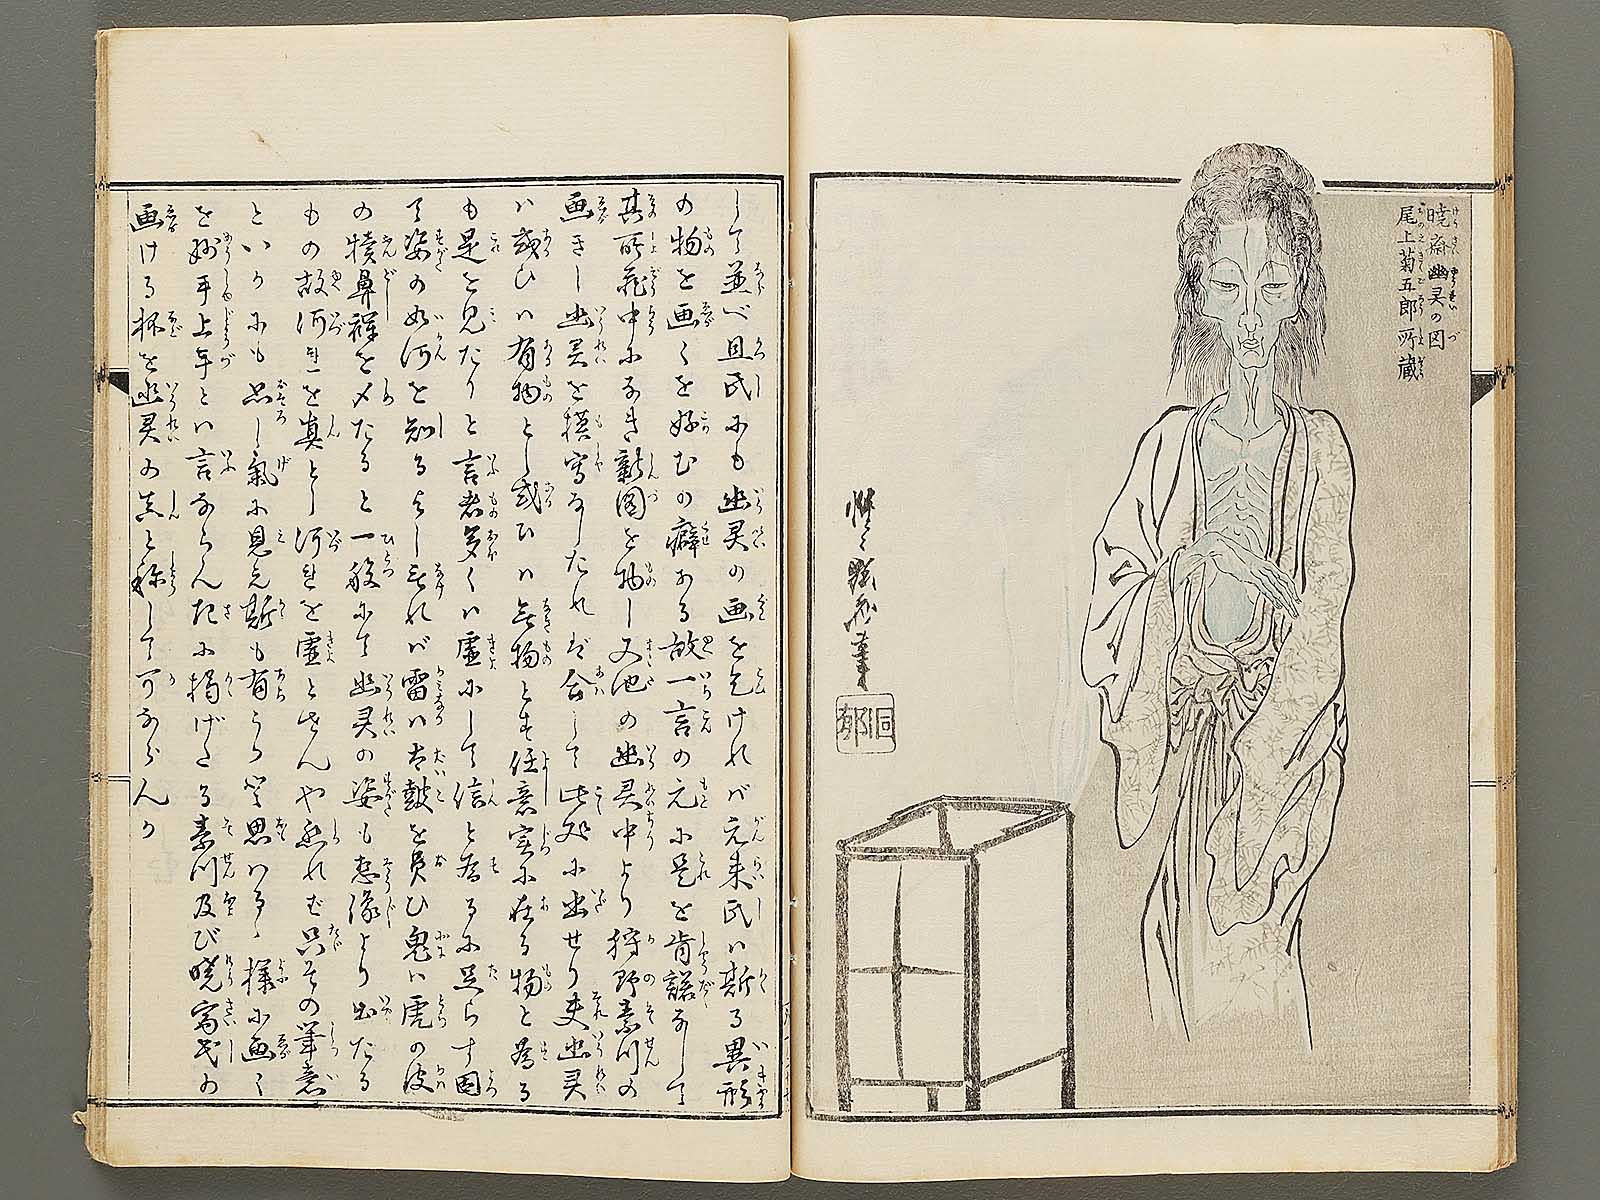 暁斎幽霊の図
尾上菊五郎所蔵
惺々暁斎筆
洞郁
して並べ且氏にも幽灵の画を乞けれバ元来氏ハ斯る異形
の物を画くを好むの癖ある故一言の元に是を肯諾なして
其所蔵中になき新図を物し又他の幽灵中より狩野素川の
画きし幽灵を模写なしたれバ会して此処に出せり夫幽灵
ハ或ひハ有物とし或ひハ無物とす任意実に在る物と為る
も是を見たりと言者多くハ虚にして信と為るに足らず因
て姿の如何を知るよしなけれバ雷ハ太鼓を負ひ鬼ハ虎の皮
の犢鼻褌を〆たると一般にて幽灵の姿も想像より出たる
もの故何れを真とし何れを虚とせんや然れども只其の筆意
といかにも恐し気に見え斯も有らうと思ハるゝ様に画く
を妙手上手とハ言ならん左に掲げたる素川及び暁斎氏の
画ける杯を幽灵の真と称して可ならんか